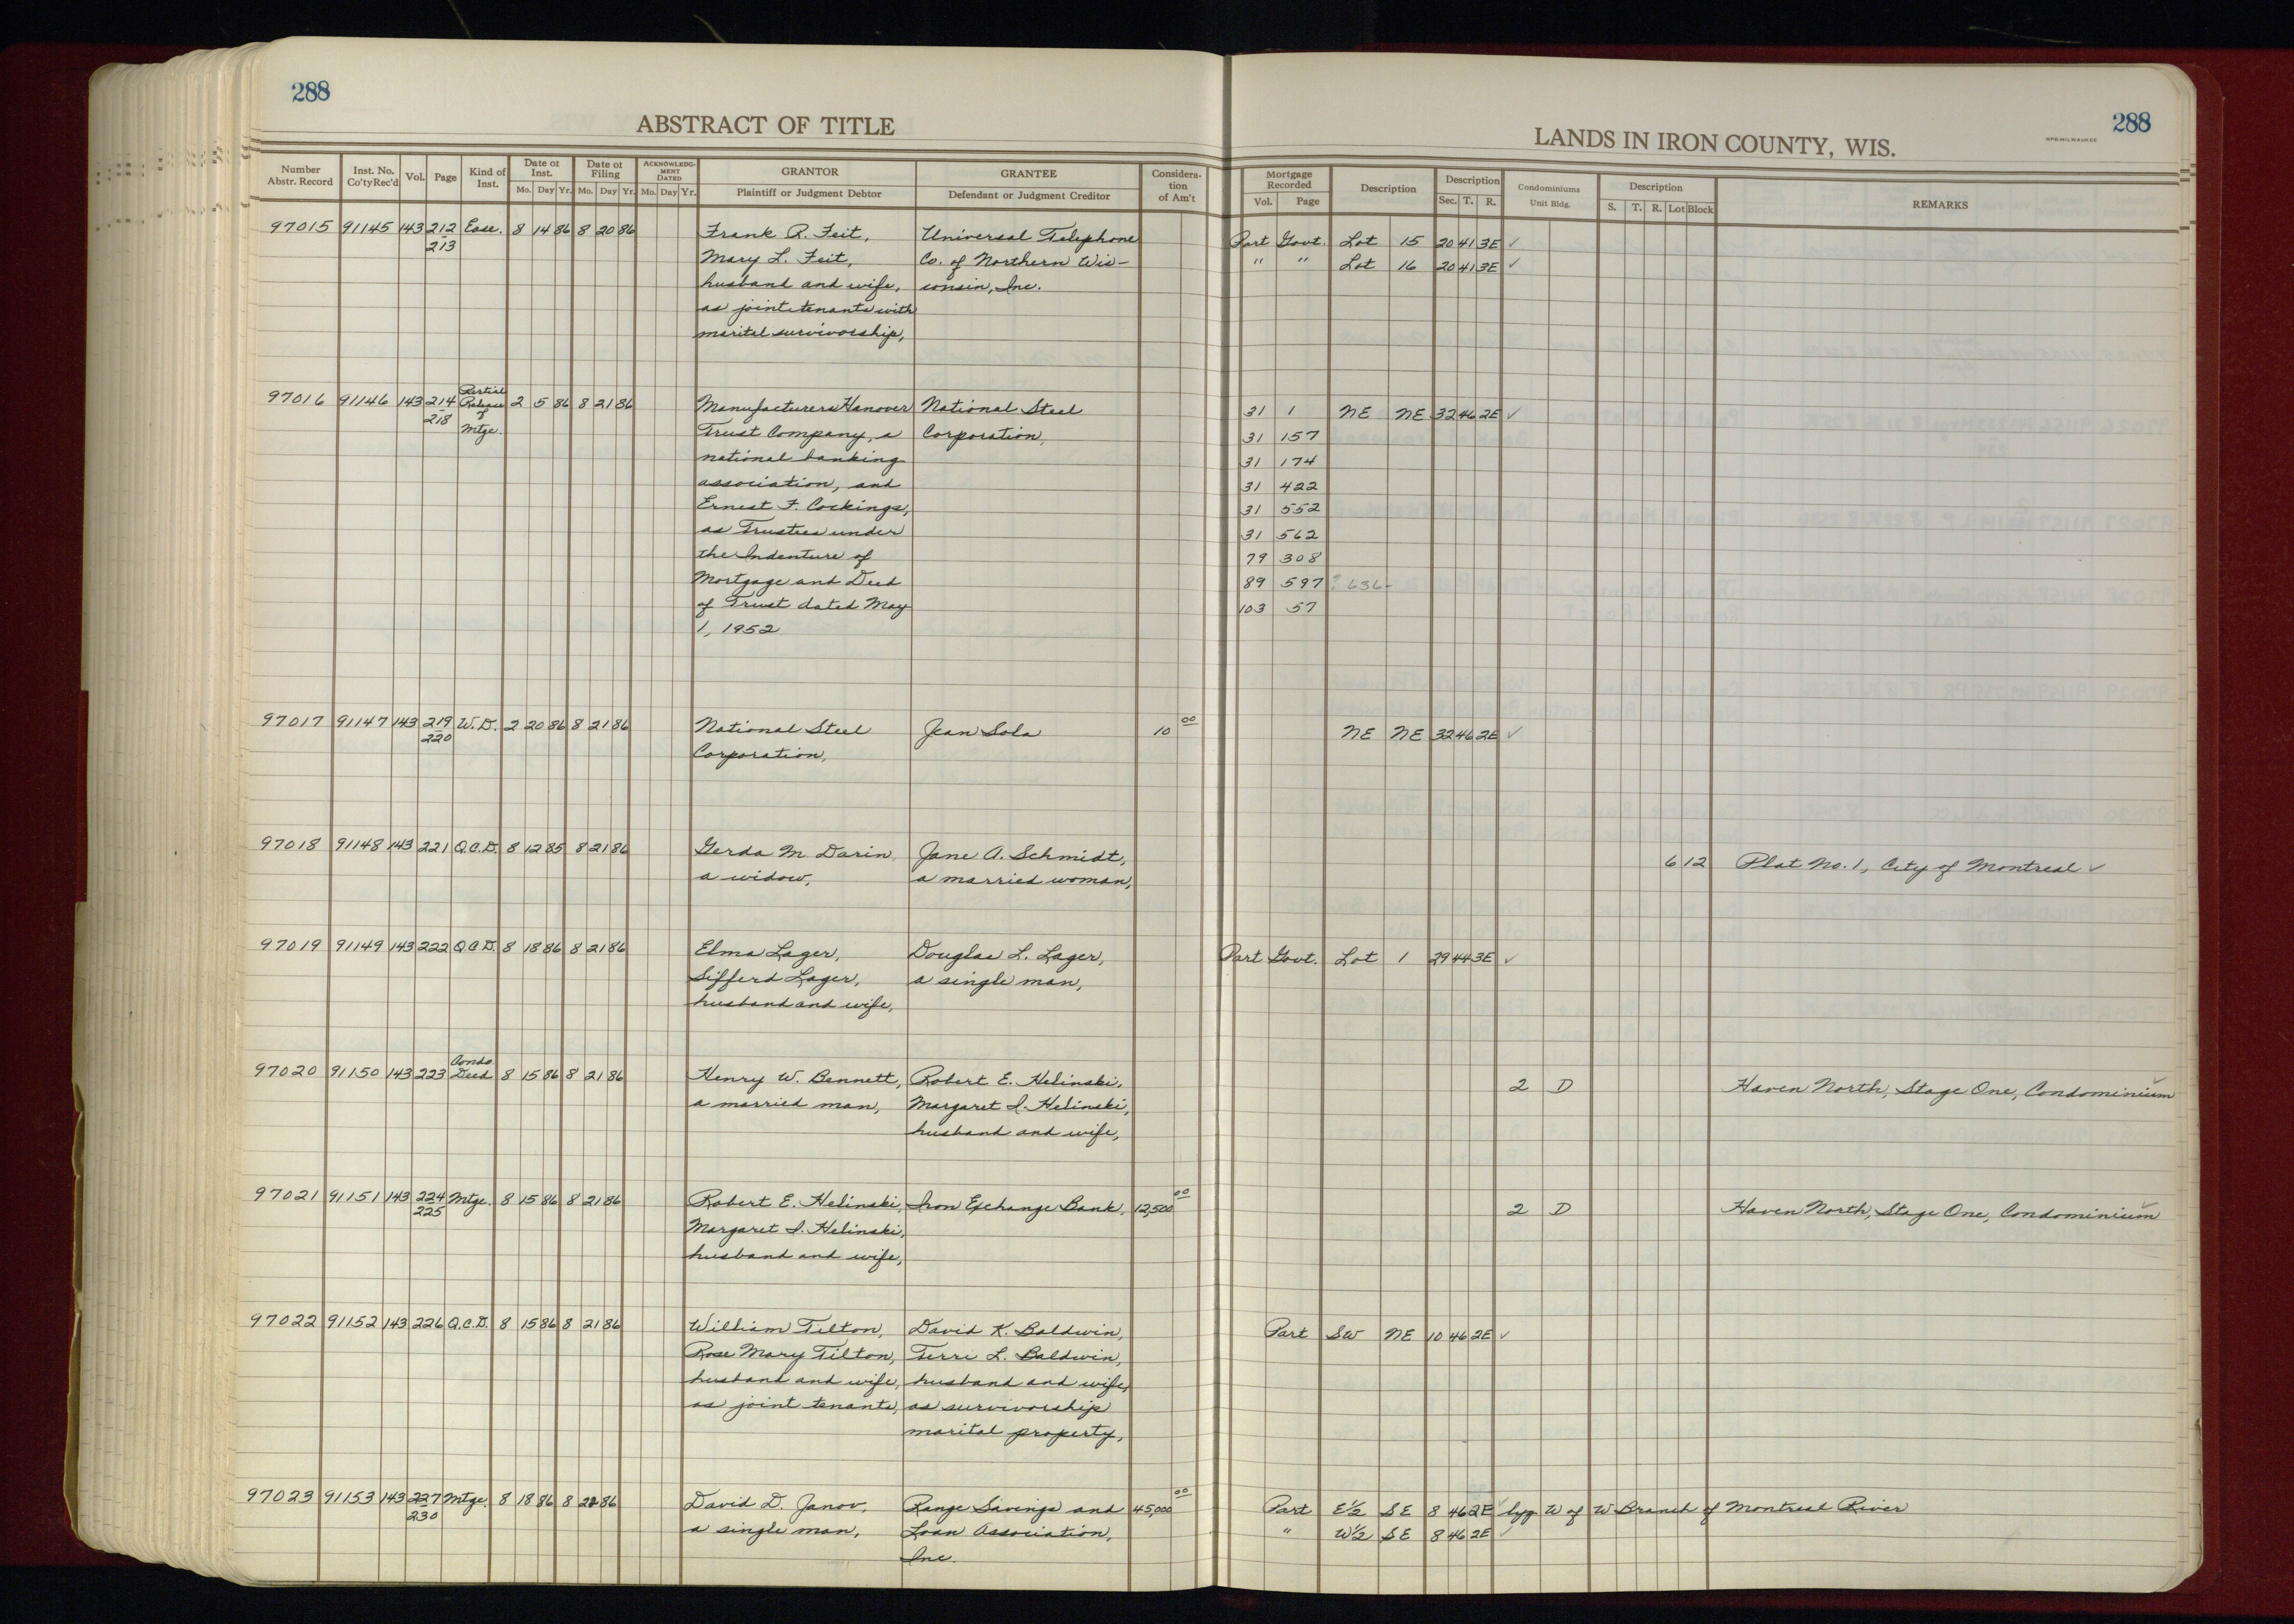 288
ABSTRACT OF TITLE
288
LANDS IN IRON COUNTY, WIS.
Number Abstr. Record | Inst. No. Co'ty Rec'd | Vol. | Page | Kind of Inst. | Date of Inst. Mo. Day Yr. | Date of Filing Mo. Day Yr. | ACKNOWLEDGMENT DATED Mo. Day Yr. | GRANTOR Plaintiff or Judgment Debtor | GRANTEE Defendant or Judgment Creditor | Consideration of Am't | Mortgage Recorded Vol. Page | Description | Description Sec. T. R. | Condominiums Unit Bldg. | Description S. T. R. Lot Block | REMARKS
97015 91145 143 212 Ease. 8 14 86 8 20 86 Frank R. Feit, Universal Telephone Part Govt. Lot 15 20 41 3E ✓
213 Mary L. Feit, Co. of Northern Wis- " " Lot 16 20 41 3E ✓
husband and wife, consin, Inc.
as joint tenants with
marital survivorship,
97016 91146 143 214 218 Partial Release of Mtge. 2 5 86 8 21 86 Manufacturers Hanover National Steel 31 1 NE NE 32 46 2E ✓
Trust Company, a Corporation, 31 157
national banking 31 174
association, and 31 422
Ernest F. Cockings, 31 552
as Trustees under 31 562
the Indenture of 79 308
Mortgage and Deed 89 597 ? 636-
of Trust dated May 103 57
1, 1952
97017 91147 143 219 W.D. 2 20 86 8 21 86 National Steel Jean Sola 10 00 NE NE 32 46 2E ✓
220 Corporation,
97018 91148 143 221 Q.C.D. 8 12 85 8 21 86 Gerda M. Darin, Jane A. Schmidt, 6 12 Plat No. 1, City of Montreal ✓
a widow, a married woman,
97019 91149 143 222 Q.C.D. 8 18 86 8 21 86 Elma Lager, Douglas L. Lager, Part Govt. Lot 1 29 44 3E ✓
Sifferd Lager, a single man,
husband and wife,
97020 91150 143 223 Condo Deed 8 15 86 8 21 86 Henry W. Bennett, Robert E. Helinski, 2 D Haven North, Stage One, Condominium ✓
a married man, Margaret I. Helinski,
husband and wife,
97021 91151 143 224 Mtge. 8 15 86 8 21 86 Robert E. Helinski, Iron Exchange Bank, 12,500 00 2 D Haven North, Stage One, Condominium ✓
225 Margaret I. Helinski,
husband and wife,
97022 91152 143 226 Q.C.D. 8 15 86 8 21 86 William Tilton, David K. Baldwin, Part SW NE 10 46 2E ✓
Rose Mary Tilton, Terri L. Baldwin,
husband and wife, husband and wife,
as joint tenants, as survivorship
marital property,
97023 91153 143 227 Mtge. 8 18 86 8 86 David D. Janov, Range Savings and 45,000 00 Part E½ SE 8 46 2E ✓ lyg W of W Branch of Montreal River
230 a single man, Loan Association, " W½ SE 8 46 2E ✓
Inc.